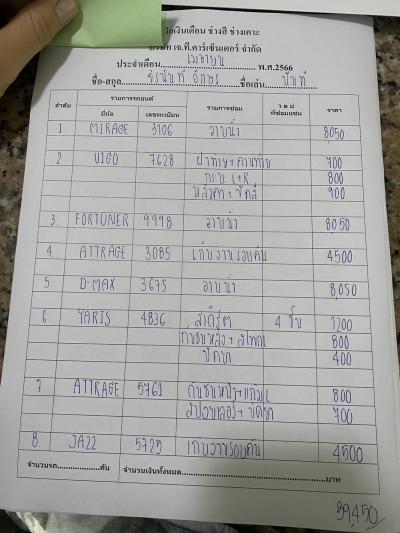 เงินเดือน ช่างสี ช่างเคาะ
บริษัท เจ.ที.คาร์เซ็นเตอร์ จำกัด
ประจำเดือน เมษายน พ.ศ.2566
ชื่อ-สกุล ชื่อเล่น
ลำดับ รายการรถยนต์ รายการซ่อม ว ด ป ที่ซ่อมแซม ราคา
ยี่ห้อ เลขทะเบียน
1 MIRAGE 3106 อาบน้ำ 8050
2 VIGO 7628 700
กระบะ L+R 800
หลังคา + 900
3 FORTUNER 9998 อาบน้ำ 8050
4 ATTRAGE 3085 เก็บงานรอบคัน 4500
5 D-MAX 3675 อาบน้ำ 8050
6 YARIS 4836 สเกิร์ต 4 ชิ้น 1200
กันชนหลัง + 800
400
7 ATTRAGE 5761 กันชนหน้า+แก้ม L 800
สปอยเลอร์+ 700
8 JAZZ 5725 เก็บงานรอบคัน 4500
จำนวนรถ คัน จำนวนเงินทั้งหมด บาท
39,450